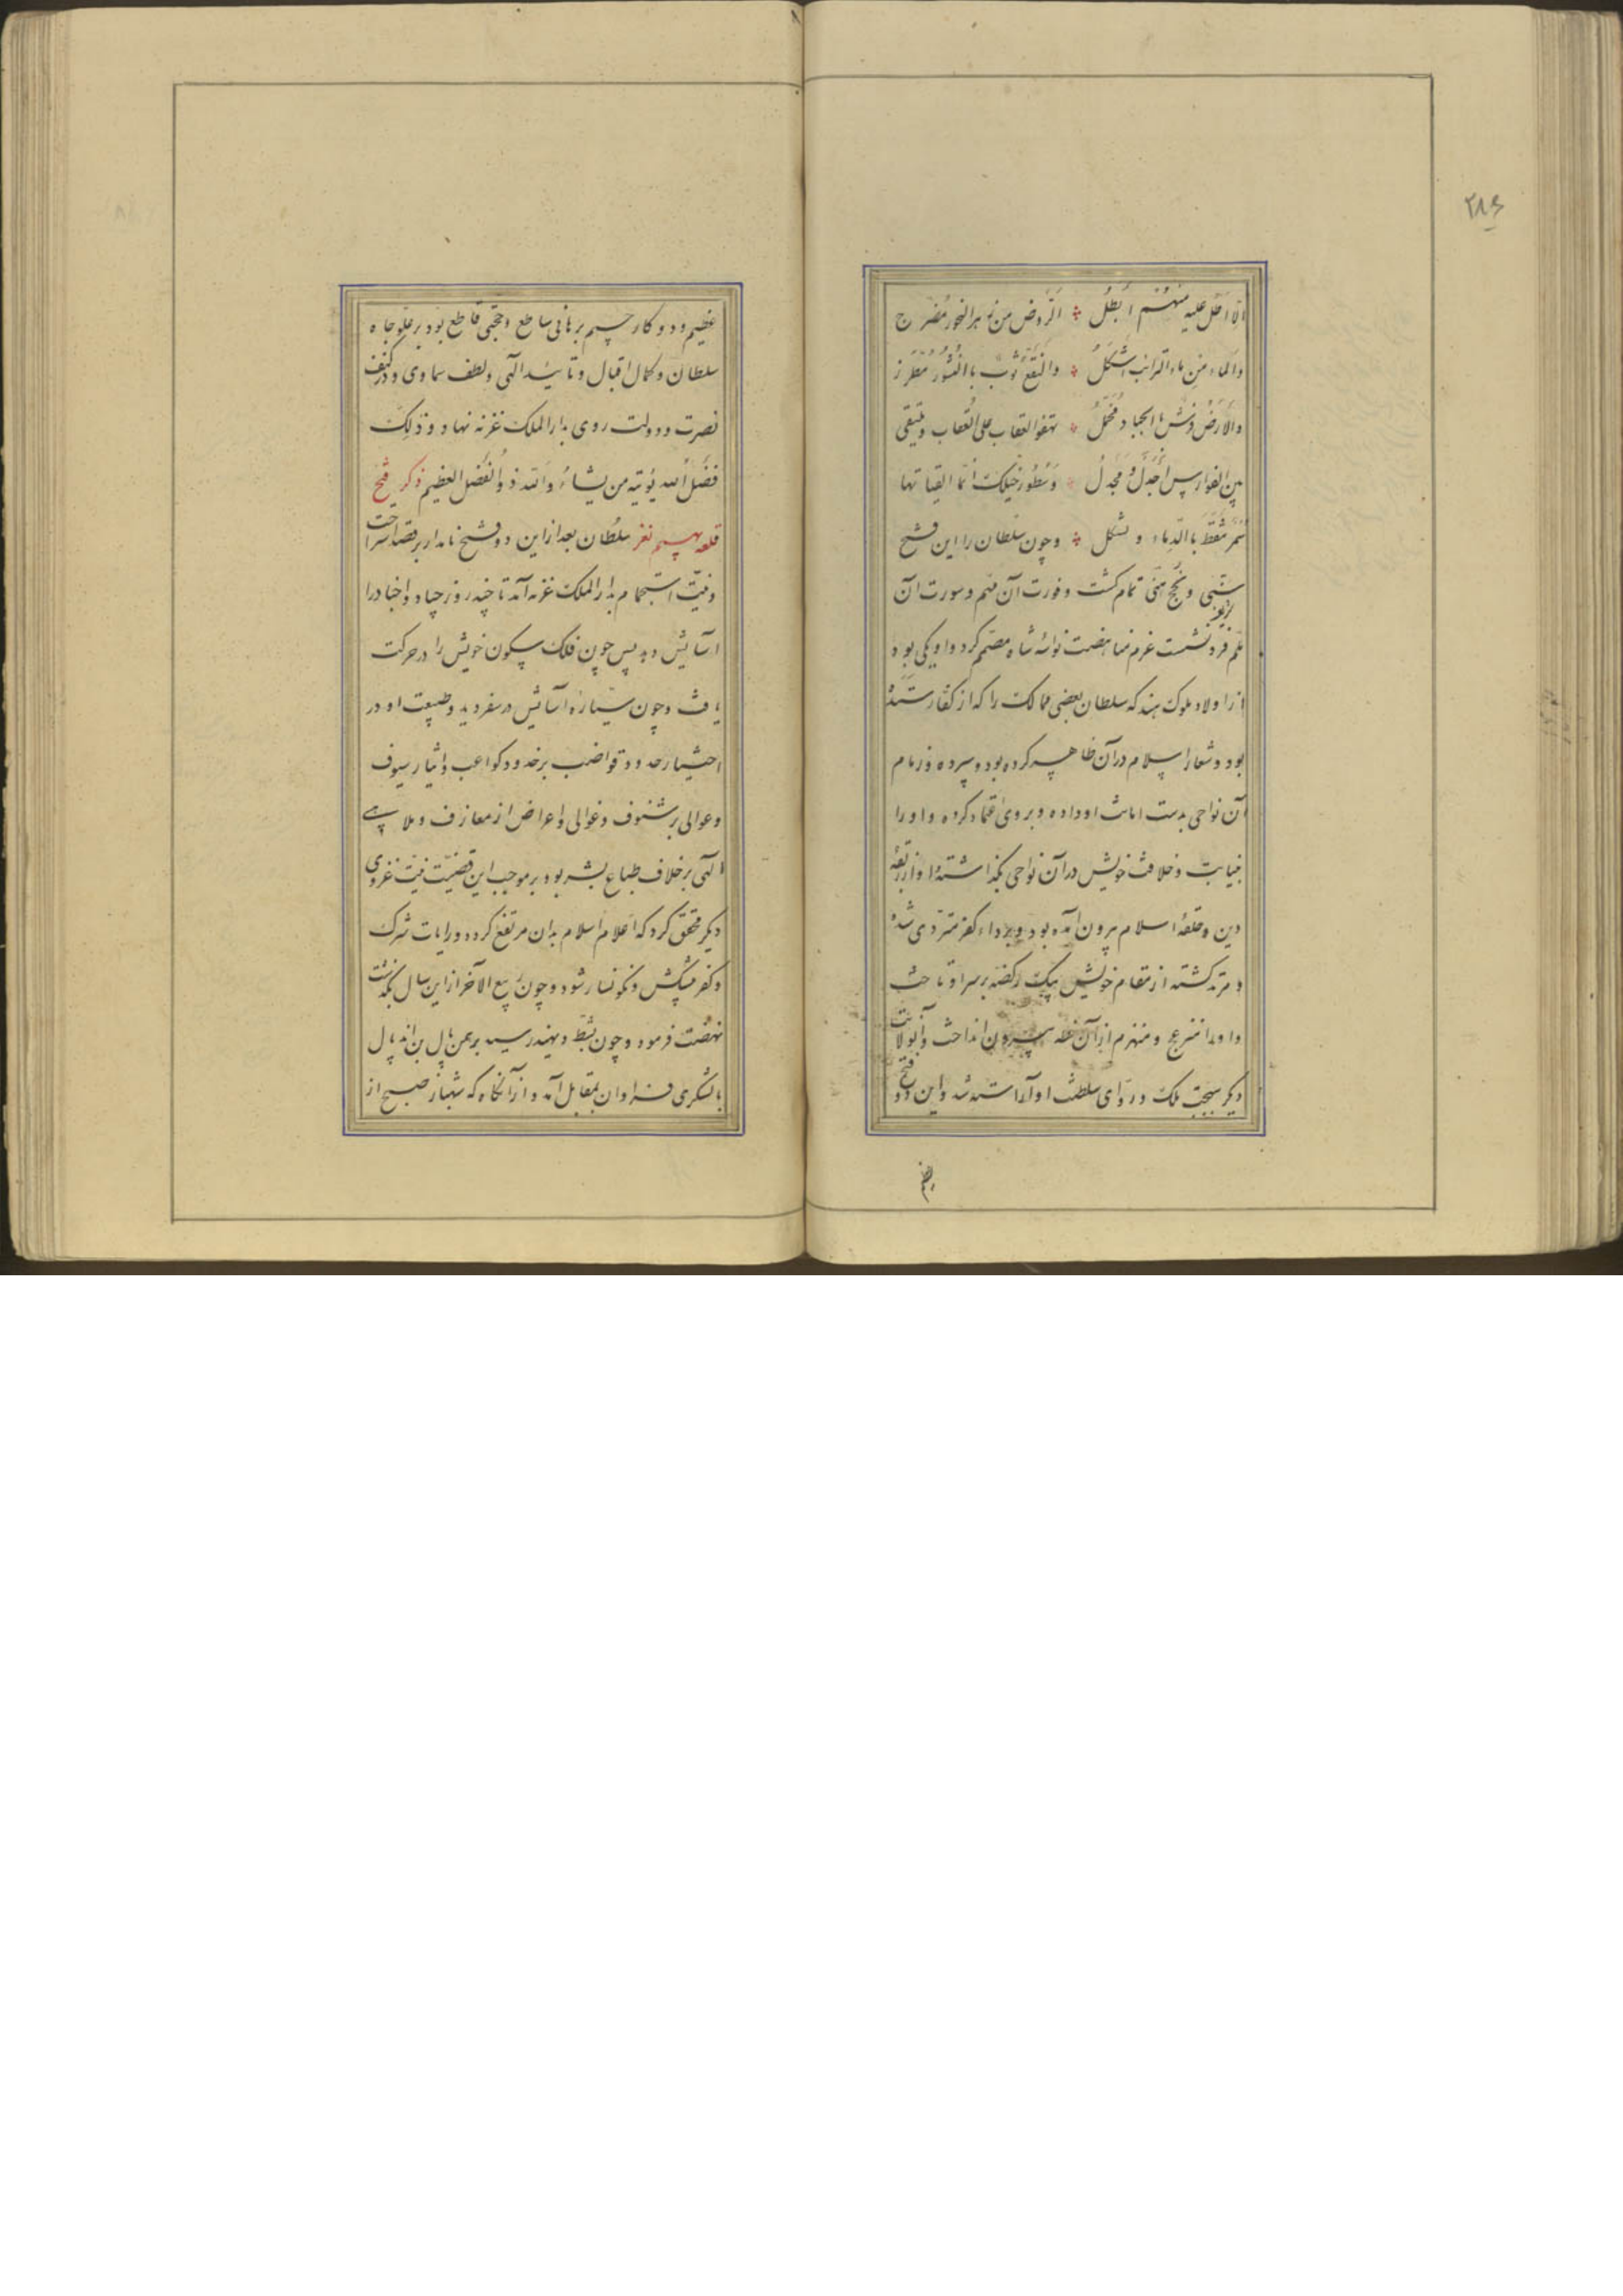 ۲۸۶
الا اطل علیه منهم ابطل ؞ الروض من زهر النحور مضرج
والماء من ماء الترائب اشکل ؞ والنقع ثوب باالنسور مطرز
والارض فرش باالجیاد مخمل ؞ تهفو العقاب علی العقاب ویلتقی
بین الفوارس اجدل و مجدل ؞ وسطور خیلک انما الفاتها
سمر تنقط باالدماء و تشکل ؞ و چون سلطان را این فتح
سنی و نجح هنی تمام کشت و فورت آن مهم وسورت آن
ملم فرو نشست عزم مناهضت نواسه شاه مصمم کرد واو یکی بود
از اولاد ملوک هند که سلطان بعضی ممالک را که از کفار ستده
بود و شعار اسلام در آن ظاهر کرده بود و سپرده و زمام
آن نواحی بدست امانت او داده و بر وی اعتماد کرده و او را
بنیابت و خلافت خویش در آن نواحی بکذاشته و او از ربقهٔ
دین و حلقهٔ اسلام بیرون آمده بود و برداء کفر متردی شده
و مرتد کشته از مقام خویش بیک رکضه بر سر او تاخت
و او را منزعج و منهزم از آن خطه بیرون انداخت و آن ولایت
دیکر بحجت ملک و رواى سلطنت او آراسته شد و این دو فتح
عظیم
عظیم و دو کار جسیم برهانی ساطع و حجتی قاطع بود بر علو جاه
سلطان و کمال اقبال و تائید الهی و لطف سماوی و در کنف
نصرت و دولت روی بدار الملک غزنه نهاد و ذلک
فضل الله یؤتیه من یشاء و الله ذو الفضل العظیم ذکر فتح
قلعه بهیم نغر سلطان بعد از این دو فتح نامدار بر قصد استراحت
و نیت استجمام بدار الملک غزنه آمد تا چند روز جیاد و اجناد را
آسایش دهد پس چون فلک سکون خویش را در حرکت
یافت و چون سیاره آسایش در سفر دید و طبیعت او در
اختیار حدود قواضب بر خدود کواعب و ایثار سیوف
و عوالی بر شنوف و غوالی و اعراض از معازف و ملاهی
الهی بر خلاف طباع بشر بود بر موجب این قضیت نیت غزوی
دیکر محقق کرد که اعلام اسلام بدان مرتفع کردد و رایات شرک
و کفر منتکس و نکونسار شود و چون ربیع الآخر از این سال بکذشت
نهضت فرمود و چون بشط ویهند رسید برهمن بال بن اند پال
با لشکری فراوان بمقابل آمد و از آنکاه که شهباز صبح از